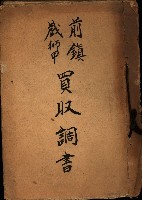 前鎮
戲獅甲
買収調書